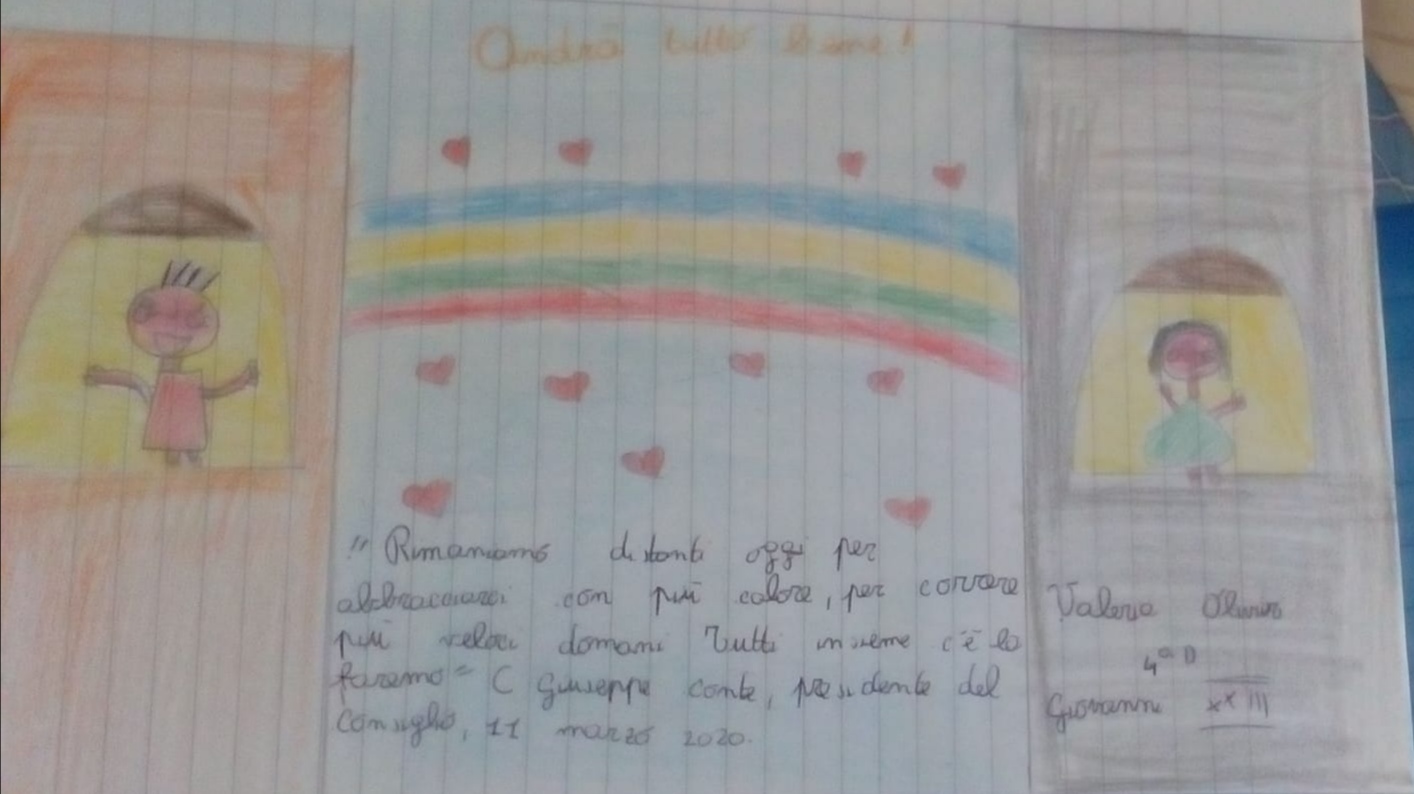 Andrà tutto bene!
" Rimaniamo distanti oggi per
abbracciarci con più calore, per correre
più veloci domani Tutti insieme c'è lo
faremo" ( Giuseppe Conte, presidente del
Consiglio, 11 marzo 2020.
Valeria
4ª D
Giovanni XXIII